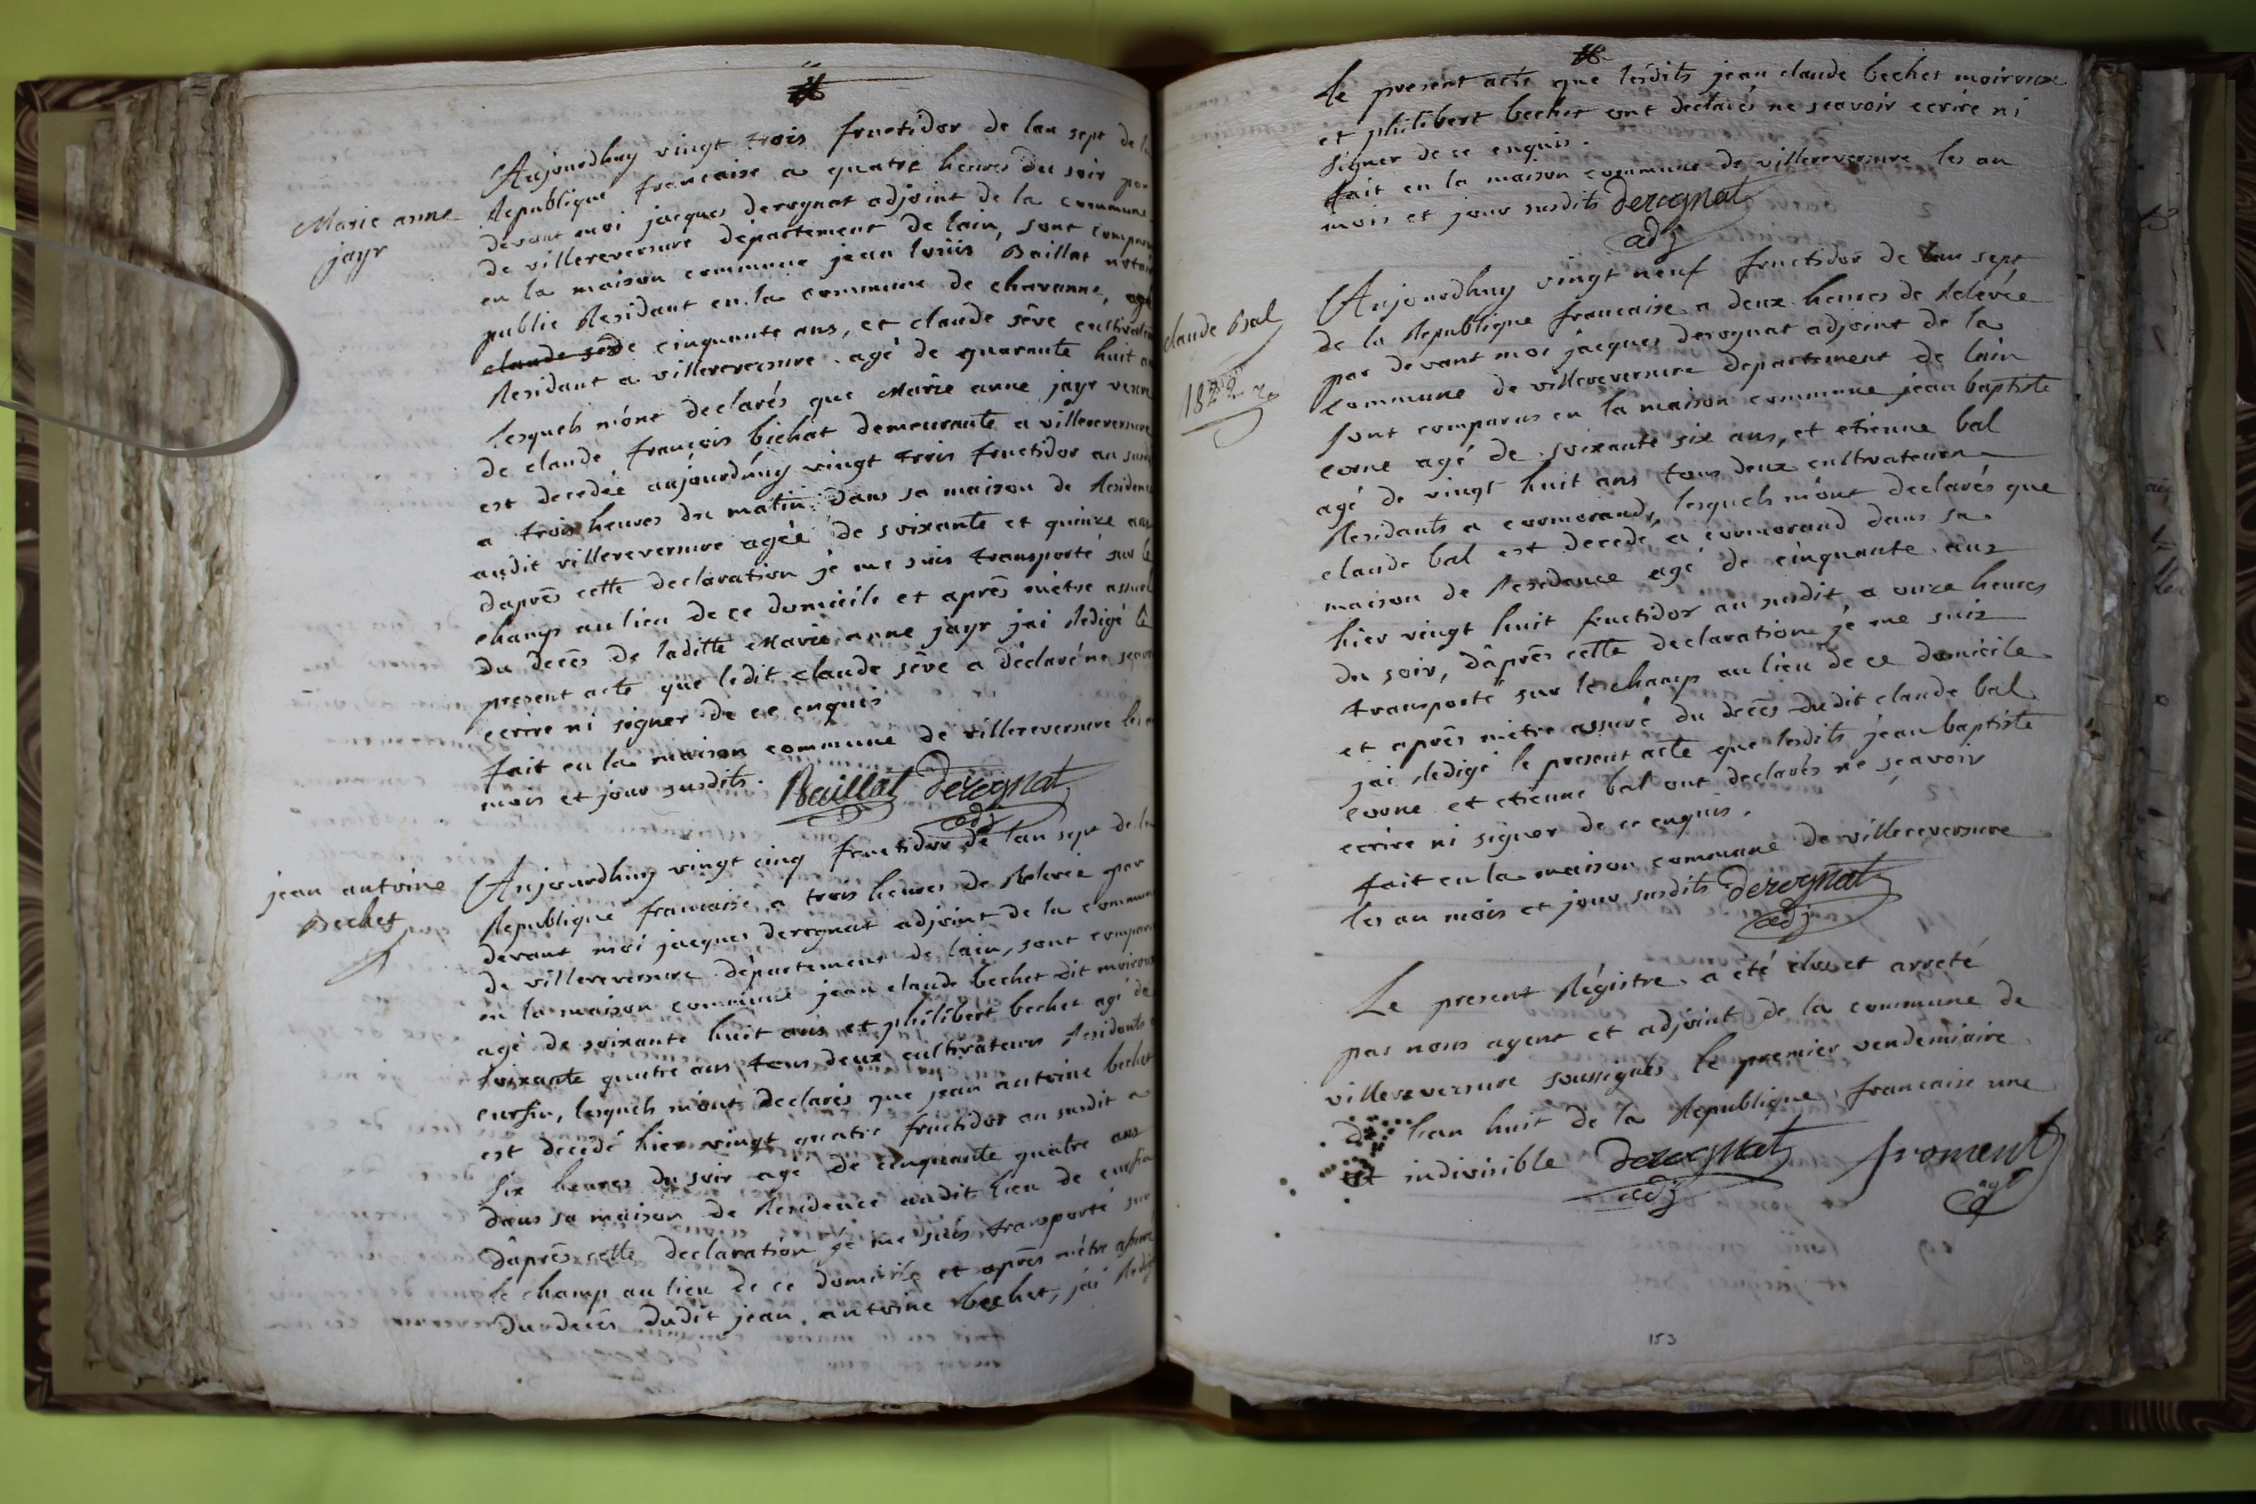 Marie anne
jayr
Aujourdhuy vingt trois fructidor de lan sept de la
Republique francaise a quatre heures du soir par
devant moi jacques derognat adjoint de la commune
de villereversure departement de lain, sont comparu
en la maison commune jean louis Baillat notai
public Residant en la commune de chavanne, agé
claude sêve de cinquante ans, et claude sêve cultivateu
Residant a villereversure agé de quarante huit an
lesquels m'ont declarés que Marie anne jayr veuve
de claude françois bichat demeurante a villereversure
est decedée aujourdhuy vingt trois fructidor an susdi
a trois heures du matin dans sa maison de Residence
audit villereversure agée de soixante et quinze ans
daprês cette declaration je me suis transporté sur le
champ au lieu de ce domicile et aprês mètre assuré
du decês de laditte Marie anne jayr jai Redigé le
present acte que ledit claude sêve a déclaré ne scavoi
ecrire ni signer de ce enquis
fait en la maison commune de villereversure les an
mois et jour susdits. Baillat derognat
adj
jean antoine
Bechet
Aujourdhuy vingt cinq fructidor de lan sept de la
Republique francaise a trois heures de Relevée par
devant moi jacques derognat adjoint de la commune
de villereversure département de lain, sont comparu
en la maison commune jean claude bechet dit moiroux
agé de soixante huit ans et philibert bechet agé de
soixante quatre ans tous deux cultivateurs Residants a
cursin, lesquels m'ont declarés que jean antoine bechet
est decedé hier vingt quatre fructidor an susdit a
six heures du soir agé de cinquante quatre ans
dans sa maison de Residence audit lieu de cursin
dâprês cette declaration je me suis transporté sur
le champ au lieu de ce domicile et aprês mètre assuré
du decês dudit jean antoine bechet, jai Redigé
le present acte que lesdits jean claude bechet moiroux
et philibert bechet ont declarés ne scavoir ecrire ni
signer de ce enquis.
fait en la maison commune de villereversure les an
mois et jour susdits derognat
adj
claude Bal
Aujourdhuy vingt neuf fructidor de lan sept
de la Republique francaise a deux heures de Relevée
par devant moi jacques derognat adjoint de la
commune de villereversure departement de lain
sont comparus en la maison commune jean baptiste
corne agé de soixante six ans, et etienne bal
agé de vingt huit ans tous deux cultivateurs
Residants a cormorand, lesquels m'ont declarés que
claude bal est decedé a cormorand dans sa
maison de Residance agé de cinquante ans
hier vingt huit fructidor an susdit a onze heures
du soir, dâprês cette declaration je me suis
transporté sur le champ au lieu de ce domicile
et aprês mètre assuré du decês dudit claude bal
jai Redigé le present acte que lesdits jean baptiste
corne et etienne bal ont declarés ne sçavoir
ecrire ni signer de ce enquis.
fait en la maison commune de villereversure
les an mois et jour susdits derognat
adj
Le present Régistre a été clos et arreté
par nous agent et adjoint de la commune de
villereversure soussignés le premier vendemiaire
de lan huit de la Republique francaise une
et indivisible derognat froment
adj agt
153